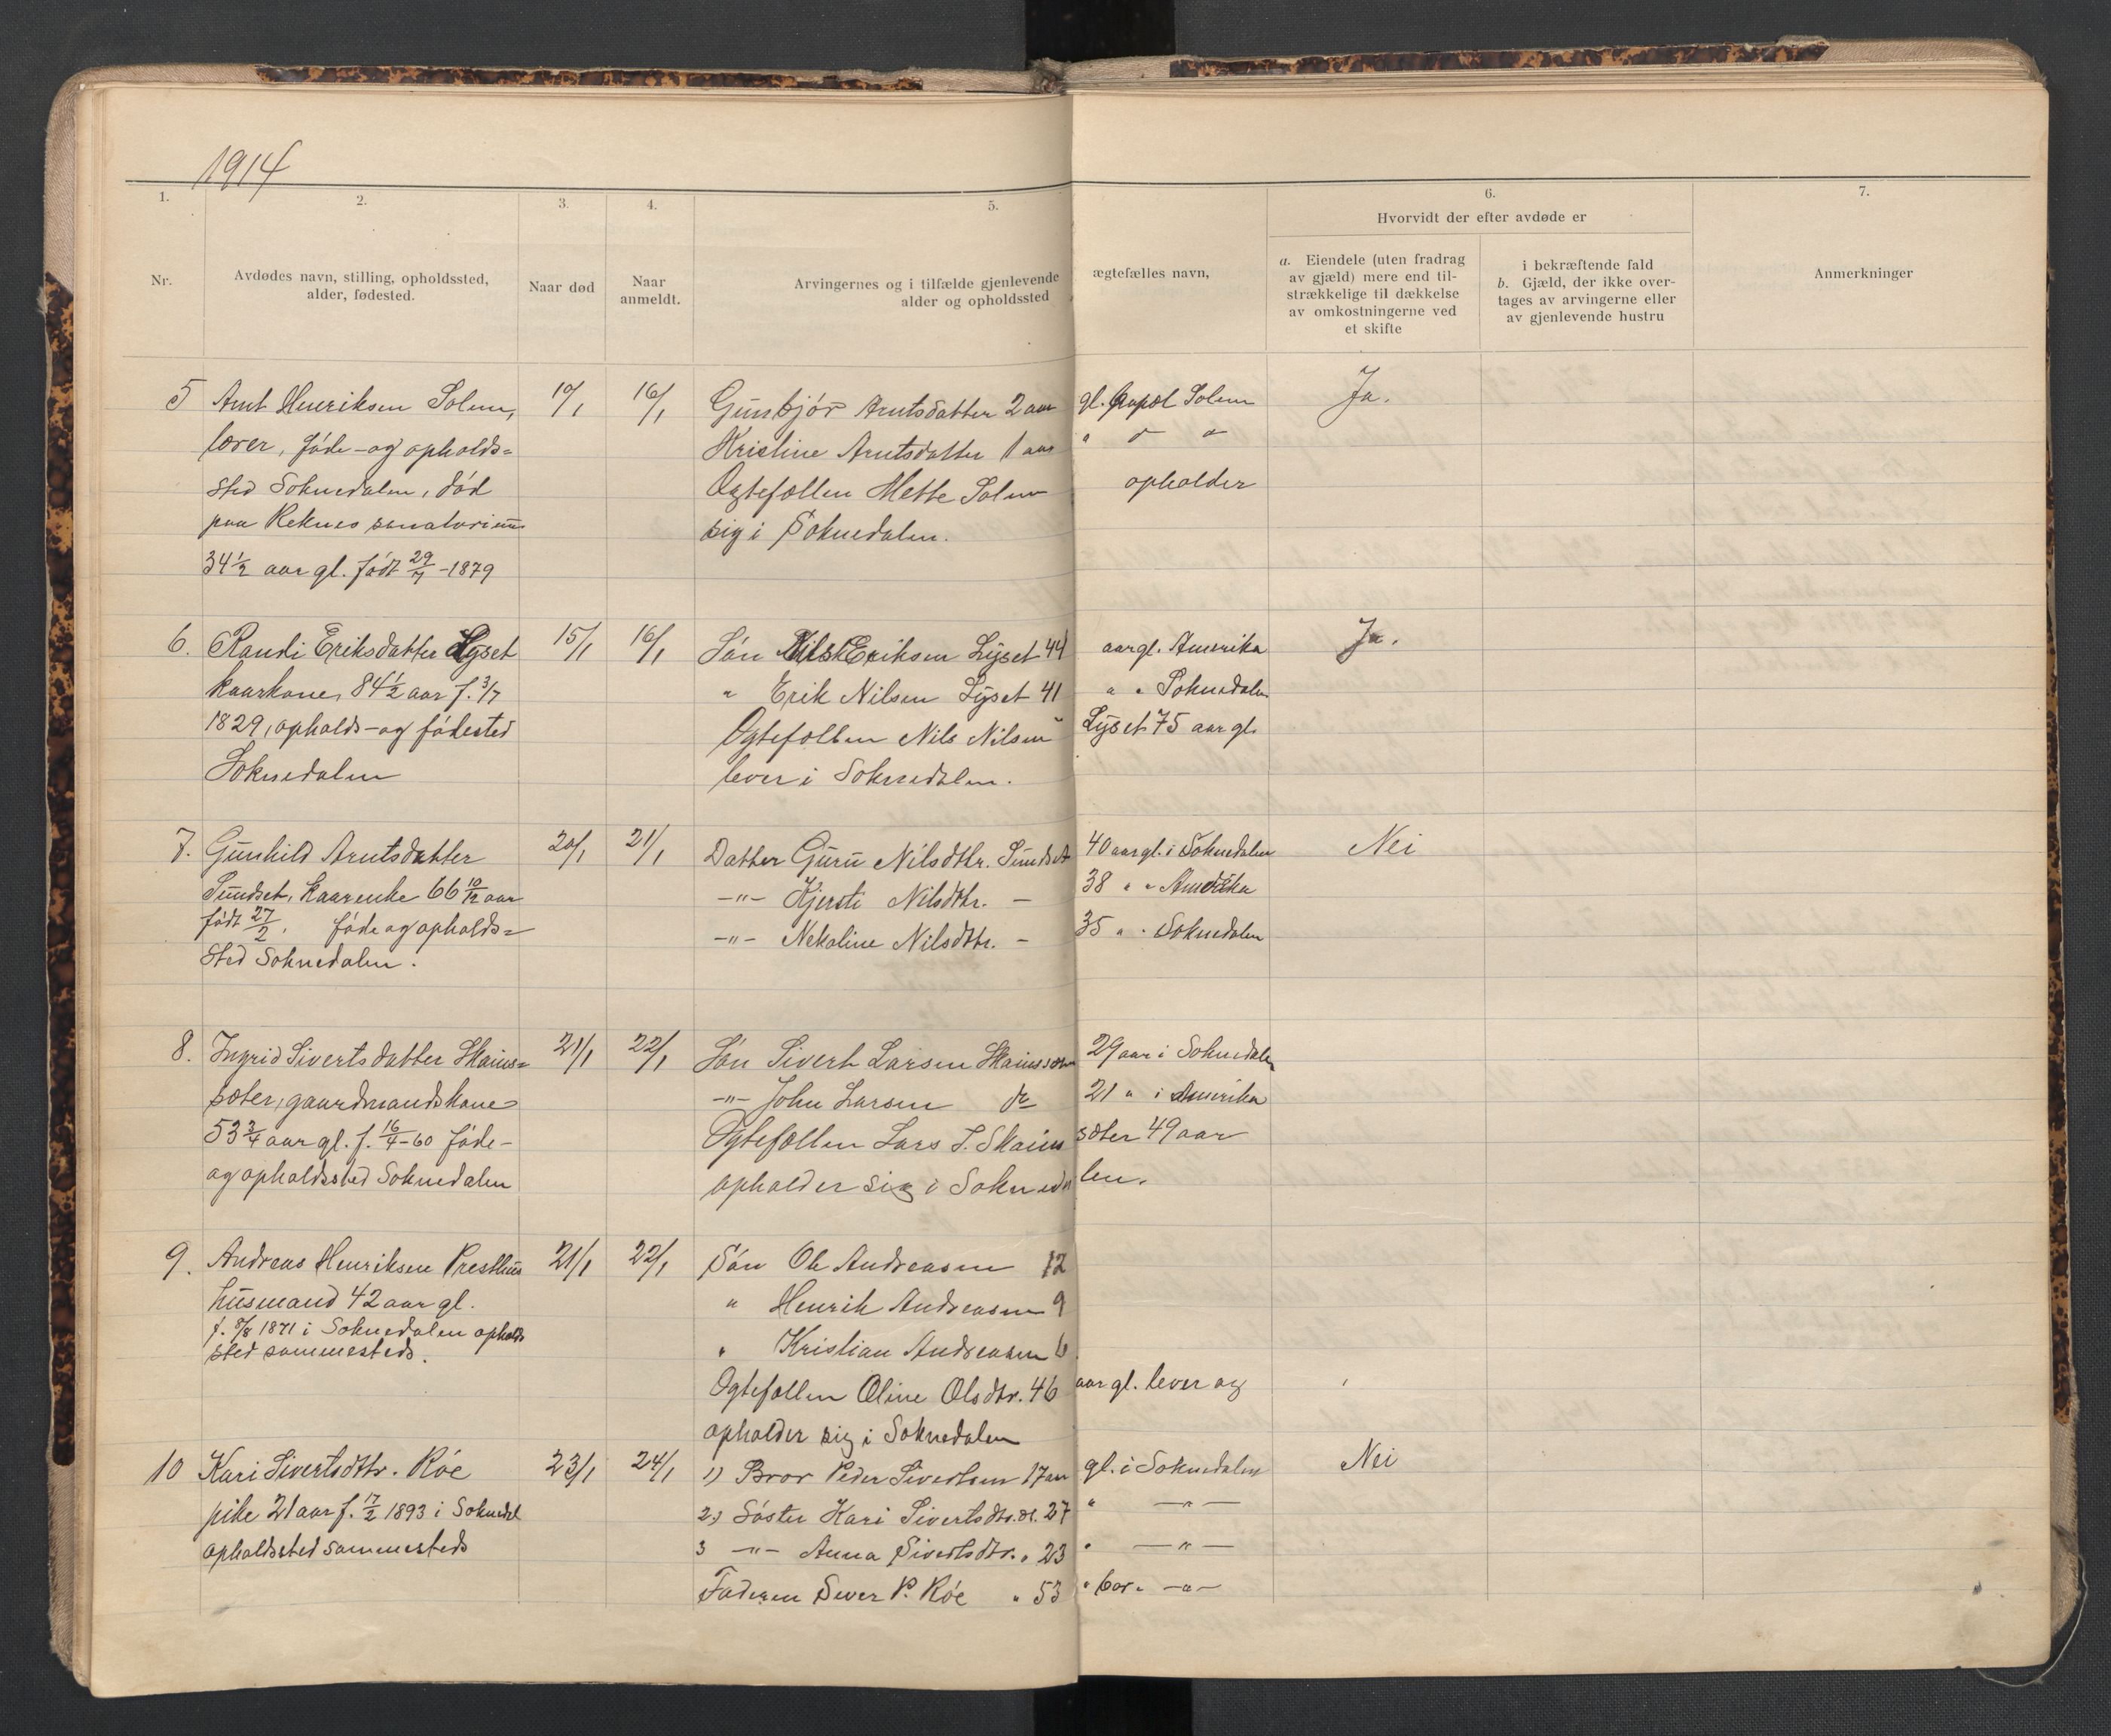 1914
1. 2. 3. 4. 5. 6. 7.
Hvorvidt der efter avdøde er
Nr.
Avdødes navn, stilling, opholdssted,
alder, fødested.
Naar død
Naar
anmeldt.
Arvingernes og i tilfælde gjenlevende ægtefælles navn,
alder og opholdssted
a. Eiendele (uten fradrag
av gjæld) mere end til-
strækkelige til dækkelse
av omkostningerne ved
et skifte
i bekræftende fald
b. Gjæld, der ikke over-
tages av arvingerne eller
av gjenlevende hustru
Anmerkninger
5 Arnt Henriksen Solem, 10/1 16/1 Gunbjór Arntsdatter 2 aar gl. Solem Ja.
lærer, føde- og opholds= Kristine Arntsdatter 1 aar " " "
sted Soknedalen, død Ægtefællen Mette Solem opholder
paa Reknes sanatorium sig i Soknedalen.
34½ aar gl. født 29/7 - 1879
6. Randi Eriksdatter Lyset 15/1 16/1 Søn Eriksen Lyset 44 aar gl. Amerika Ja.
kaarkone, 84½ aar f. 3/7 " Erik Nilsen Lyset 41 " " Soknedalen
1829, opholds- og fødested Ægtefællen Nils Nilsen Lyset 75 aar gl.
Soknedalen lever i Soknedalen.
7. Gunhild Arntsdatter 20/1 21/1 Datter Guru Nilsdtr. Sundset 40 aar gl. i Soknedalen Nei
Sundset, kaarenke 66 10/12 aar -"- Kjersti Nilsdtr. - 38 " " Amerika
født 27/2, føde og opholds= -"- Nekoline Nilsdtr. - 35 " " Soknedalen
sted Soknedalen.
8. Ingrid Sivertsdatter Skains= 21/1 22/1 Søn Sivert Larsen Skainssæter 29 aar i Soknedalen
sæter, gaardmandskone -"- John Larsen do 21 " i Amerika
53¾ aar gl. f. 16/4 - 60 føde- Ægtefællen Lars J. Skains sæter 49 aar
og opholdssted Soknedalen opholder sig i Sokneda len.
9. Andreas Henriksen Presthus 21/1 22/1 Søn Ole Andreasen 12
husmand 42 aar gl. " Henrik Andreasen 9
f. 8/8 1871 i Soknedalen opholds " Kristian Andreasen 6
sted sammesteds.
Ægtefællen Oline Olsdtr. 46 aar gl. lever og
opholder sig i Soknedalen
10 Kari Sivertsdtr. Róe 23/1 24/1 1) Bror Peder Sivertsen 17 aar gl. i Soknedalen Nei
pike 21 aar f. 17/2 1893 i Soknedal 2) Søster Kari Sivertsdtr. 27 " -"-
opholdssted sammesteds 3 -"- Anna Sivertsdtr. " 23 " -"-
Faderen Sivert P. Róe " 53 " bor " -"-